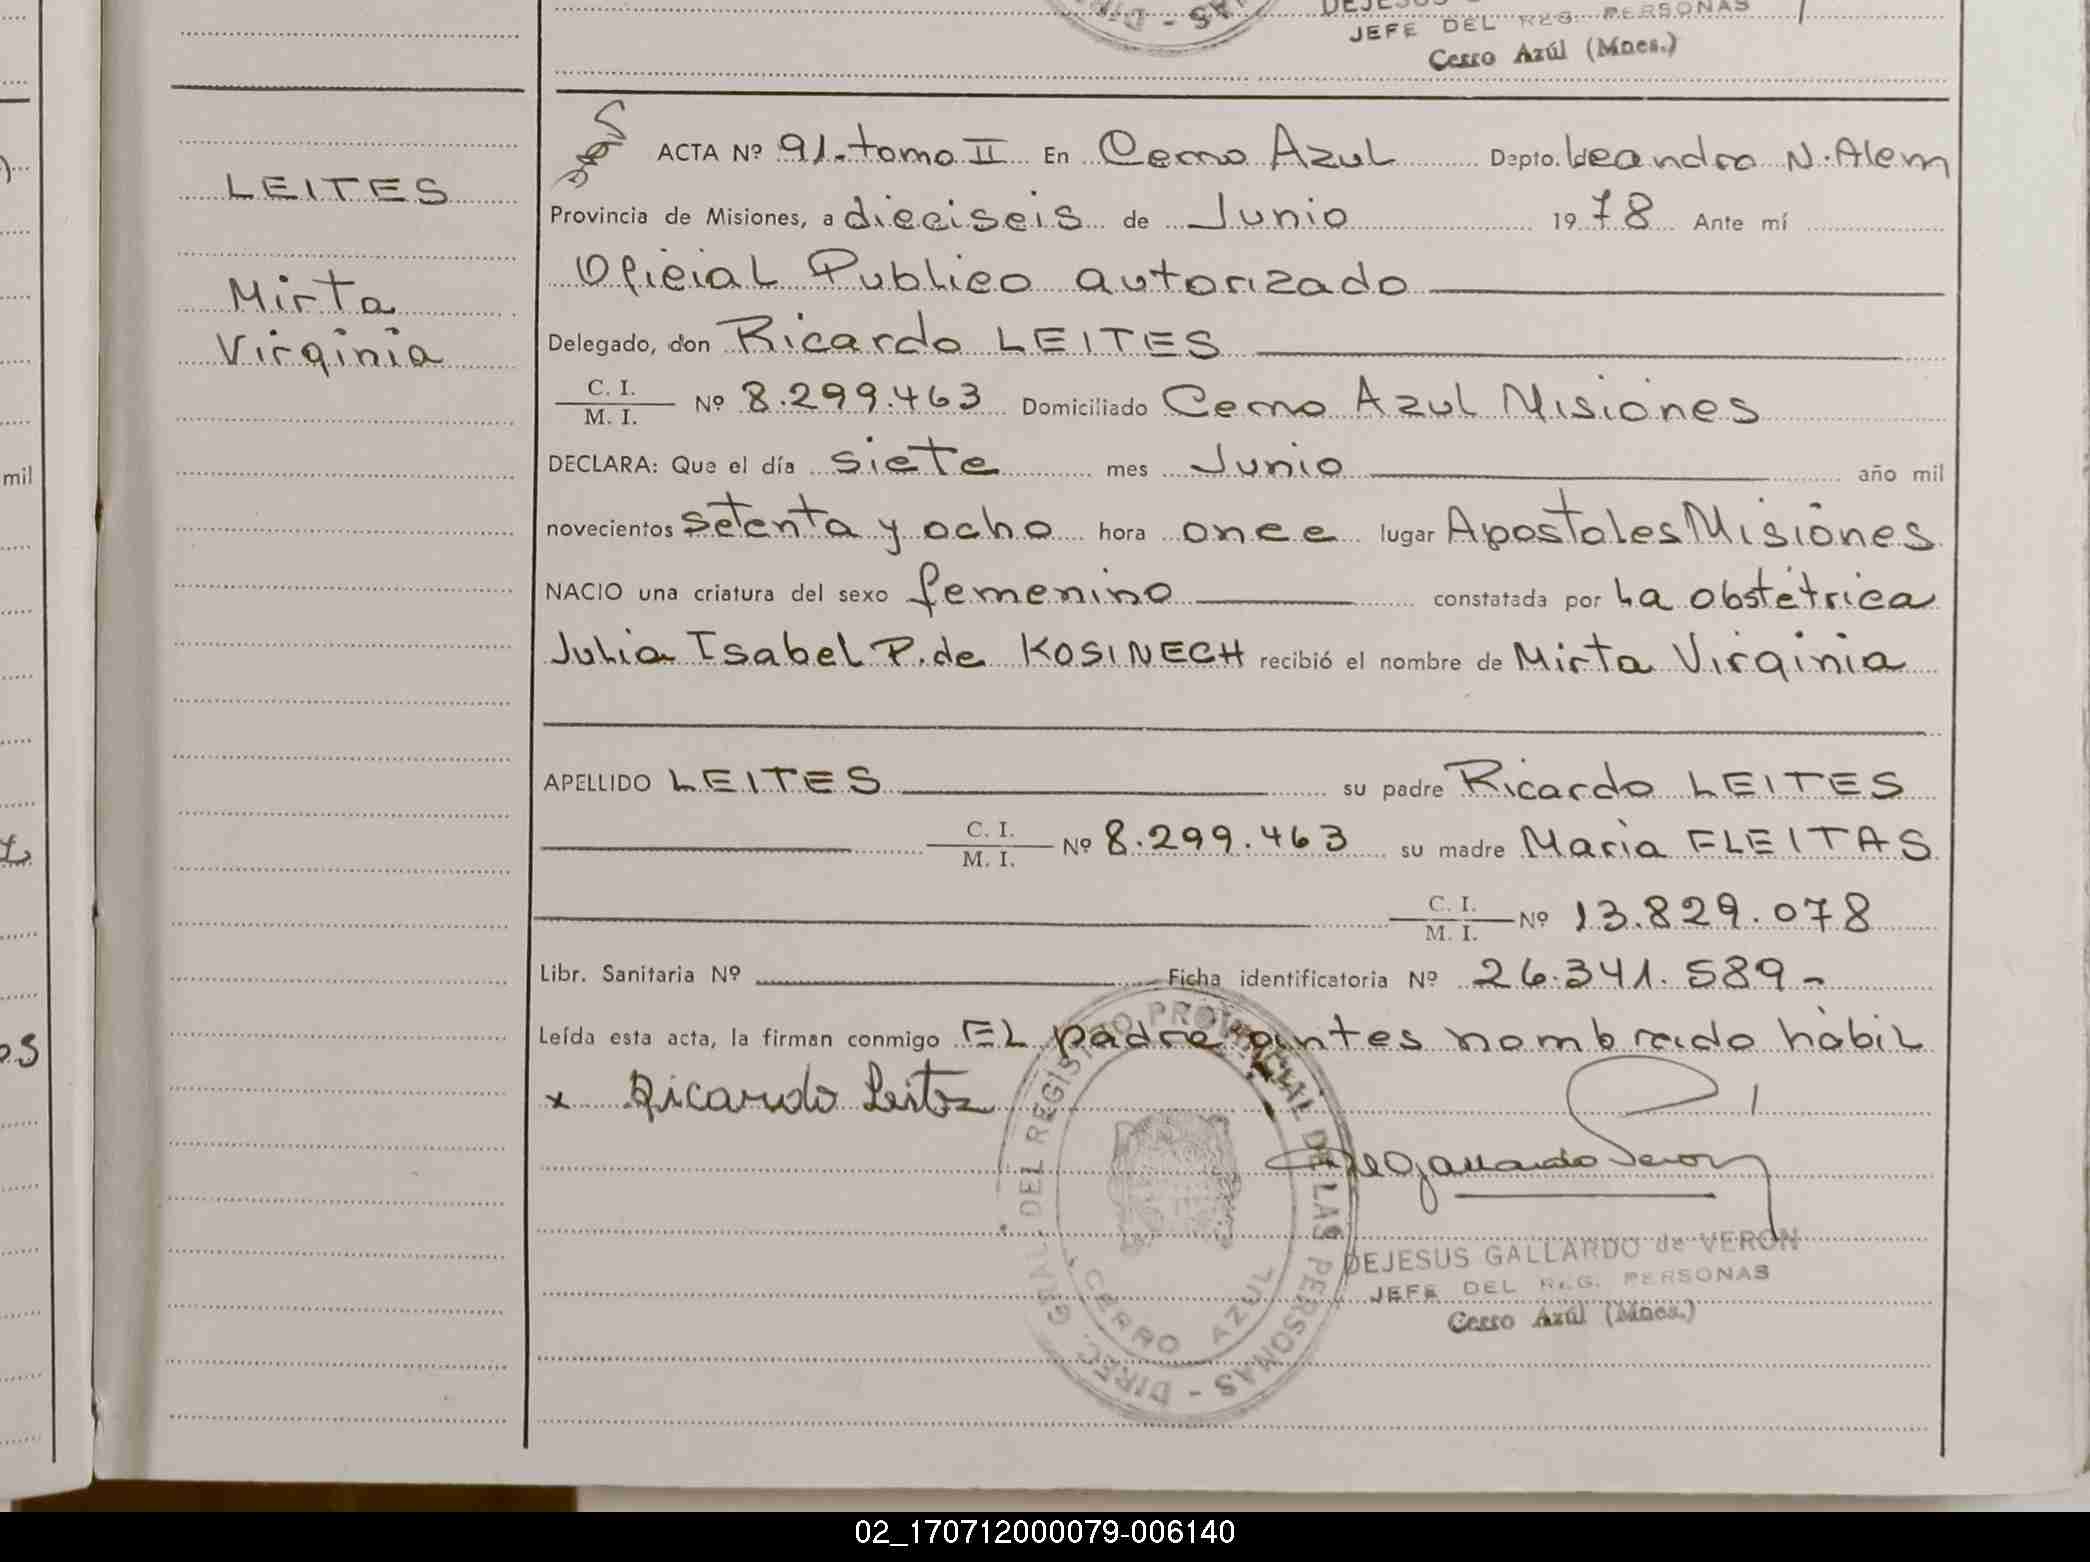 JEFE DEL REG. PERSONAS
Cerro Azúl (Mnes.)
LEITES
Mirta
Virginia
ACTA Nº 91.tomo II En Cerro Azul Depto. Leandro N. Alem
Provincia de Misiones, a dieciseis de Junio 1978 Ante mí
Oficial Publico autorizado
Delegado, don Ricardo LEITES
C. I.
M. I. Nº 8.299.463 Domiciliado Cerro Azul Misiones
DECLARA: Que el día siete mes Junio año mil
novecientos setenta y ocho hora once lugar Apostoles Misiones
NACIO una criatura del sexo femenino constatada por La obstétrica
Julia Isabel P. de KOSINECH recibió el nombre de Mirta Virginia
APELLIDO LEITES su padre Ricardo LEITES
C. I.
M. I. Nº 8.299.463 su madre Maria FLEITAS
C. I.
M. I. Nº 13.829.078
Libr. Sanitaria Nº Ficha identificatoria Nº 26.341.589-
Leída esta acta, la firman conmigo EL padre antes nombrado hábil
x Ricardo Leites
DIREC. GRAL. DEL REGISTRO PROVINCIAL DE LAS PERSONAS -
CERRO AZUL
DEJESUS GALLARDO de VERON
JEFE DEL REG. PERSONAS
Cerro Azúl (Mnes.)
mil
os
02_170712000079-006140